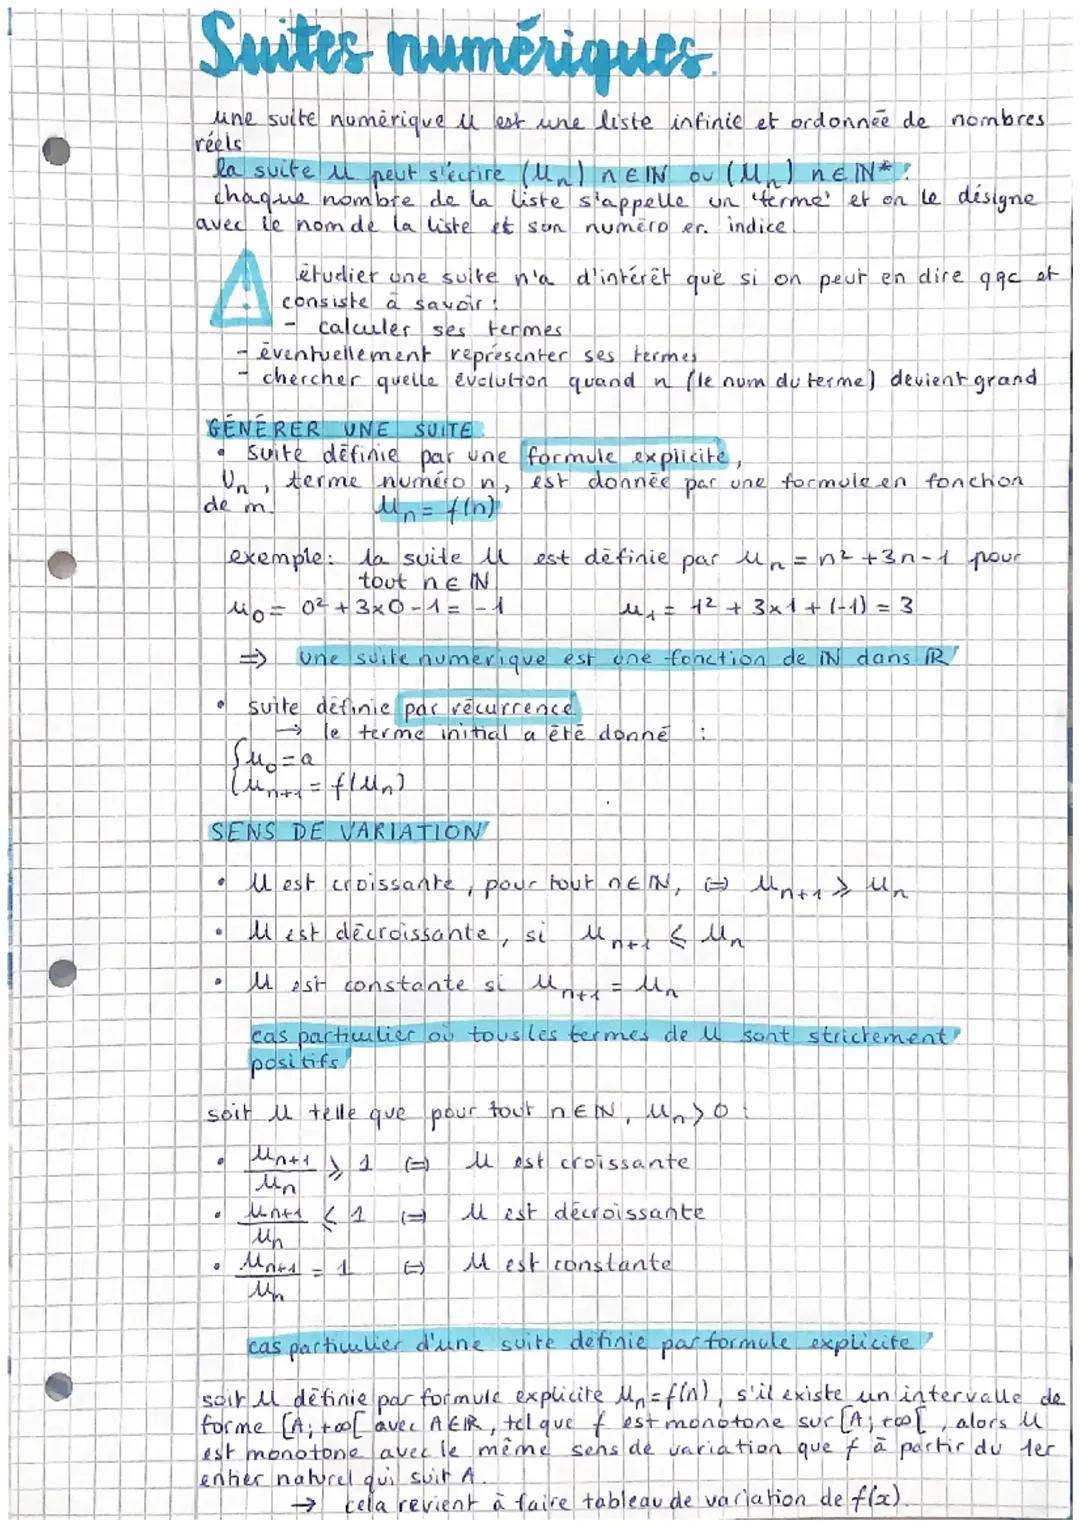 Suites numériques.
une suite numérique u est une liste infinie et ordonnée de nombres
réels
la suite u peut s'écrire (Un) n∈ℕ ou (Un) n∈ℕ*.
chaque nombre de la liste s'appelle un 'terme' et on le désigne
avec le nom de la liste et son numéro en indice.
étudier une suite n'a d'intérêt que si on peut en dire qqc et
consiste à savoir :
- calculer ses termes
- éventuellement représenter ses termes
- chercher quelle évolution quand n (le num du terme) devient grand
GÉNÉRER UNE SUITE
• suite définie par une formule explicite,
Un, terme numéro n, est donnée par une formule en fonction
de n. Un = f(n)
exemple: la suite U est définie par Un = n² + 3n - 1 pour
tout n∈ℕ
u0 = 0² + 3×0 - 1 = -1 u1 = 1² + 3×1 + (-1) = 3
⇒ une suite numérique est une fonction de ℕ dans ℝ
• suite définie par récurrence
→ le terme initial a été donné :
{ u0 = a
{ un+1 = f(Un)
SENS DE VARIATION
• U est croissante, pour tout n∈ℕ, ⇔ Un+1 ⩾ Un
• U est décroissante, si Un+1 ⩽ Un
• U est constante si Un+1 = Un
cas particulier où tous les termes de U sont strictement
positifs
soit U telle que pour tout n∈ℕ, Un > 0 :
• Un+1/Un ⩾ 1 ⇔ U est croissante
• Un+1/Un ⩽ 1 ⇔ U est décroissante
• Un+1/Un = 1 ⇔ U est constante
cas particulier d'une suite définie par formule explicite
soit U définie par formule explicite Un = f(n), s'il existe un intervalle de
forme [A; +∞[ avec A∈ℝ, tel que f est monotone sur [A; +∞[, alors U
est monotone avec le même sens de variation que f à partir du 1er
entier naturel qui suit A.
→ cela revient à faire tableau de variation de f(x).